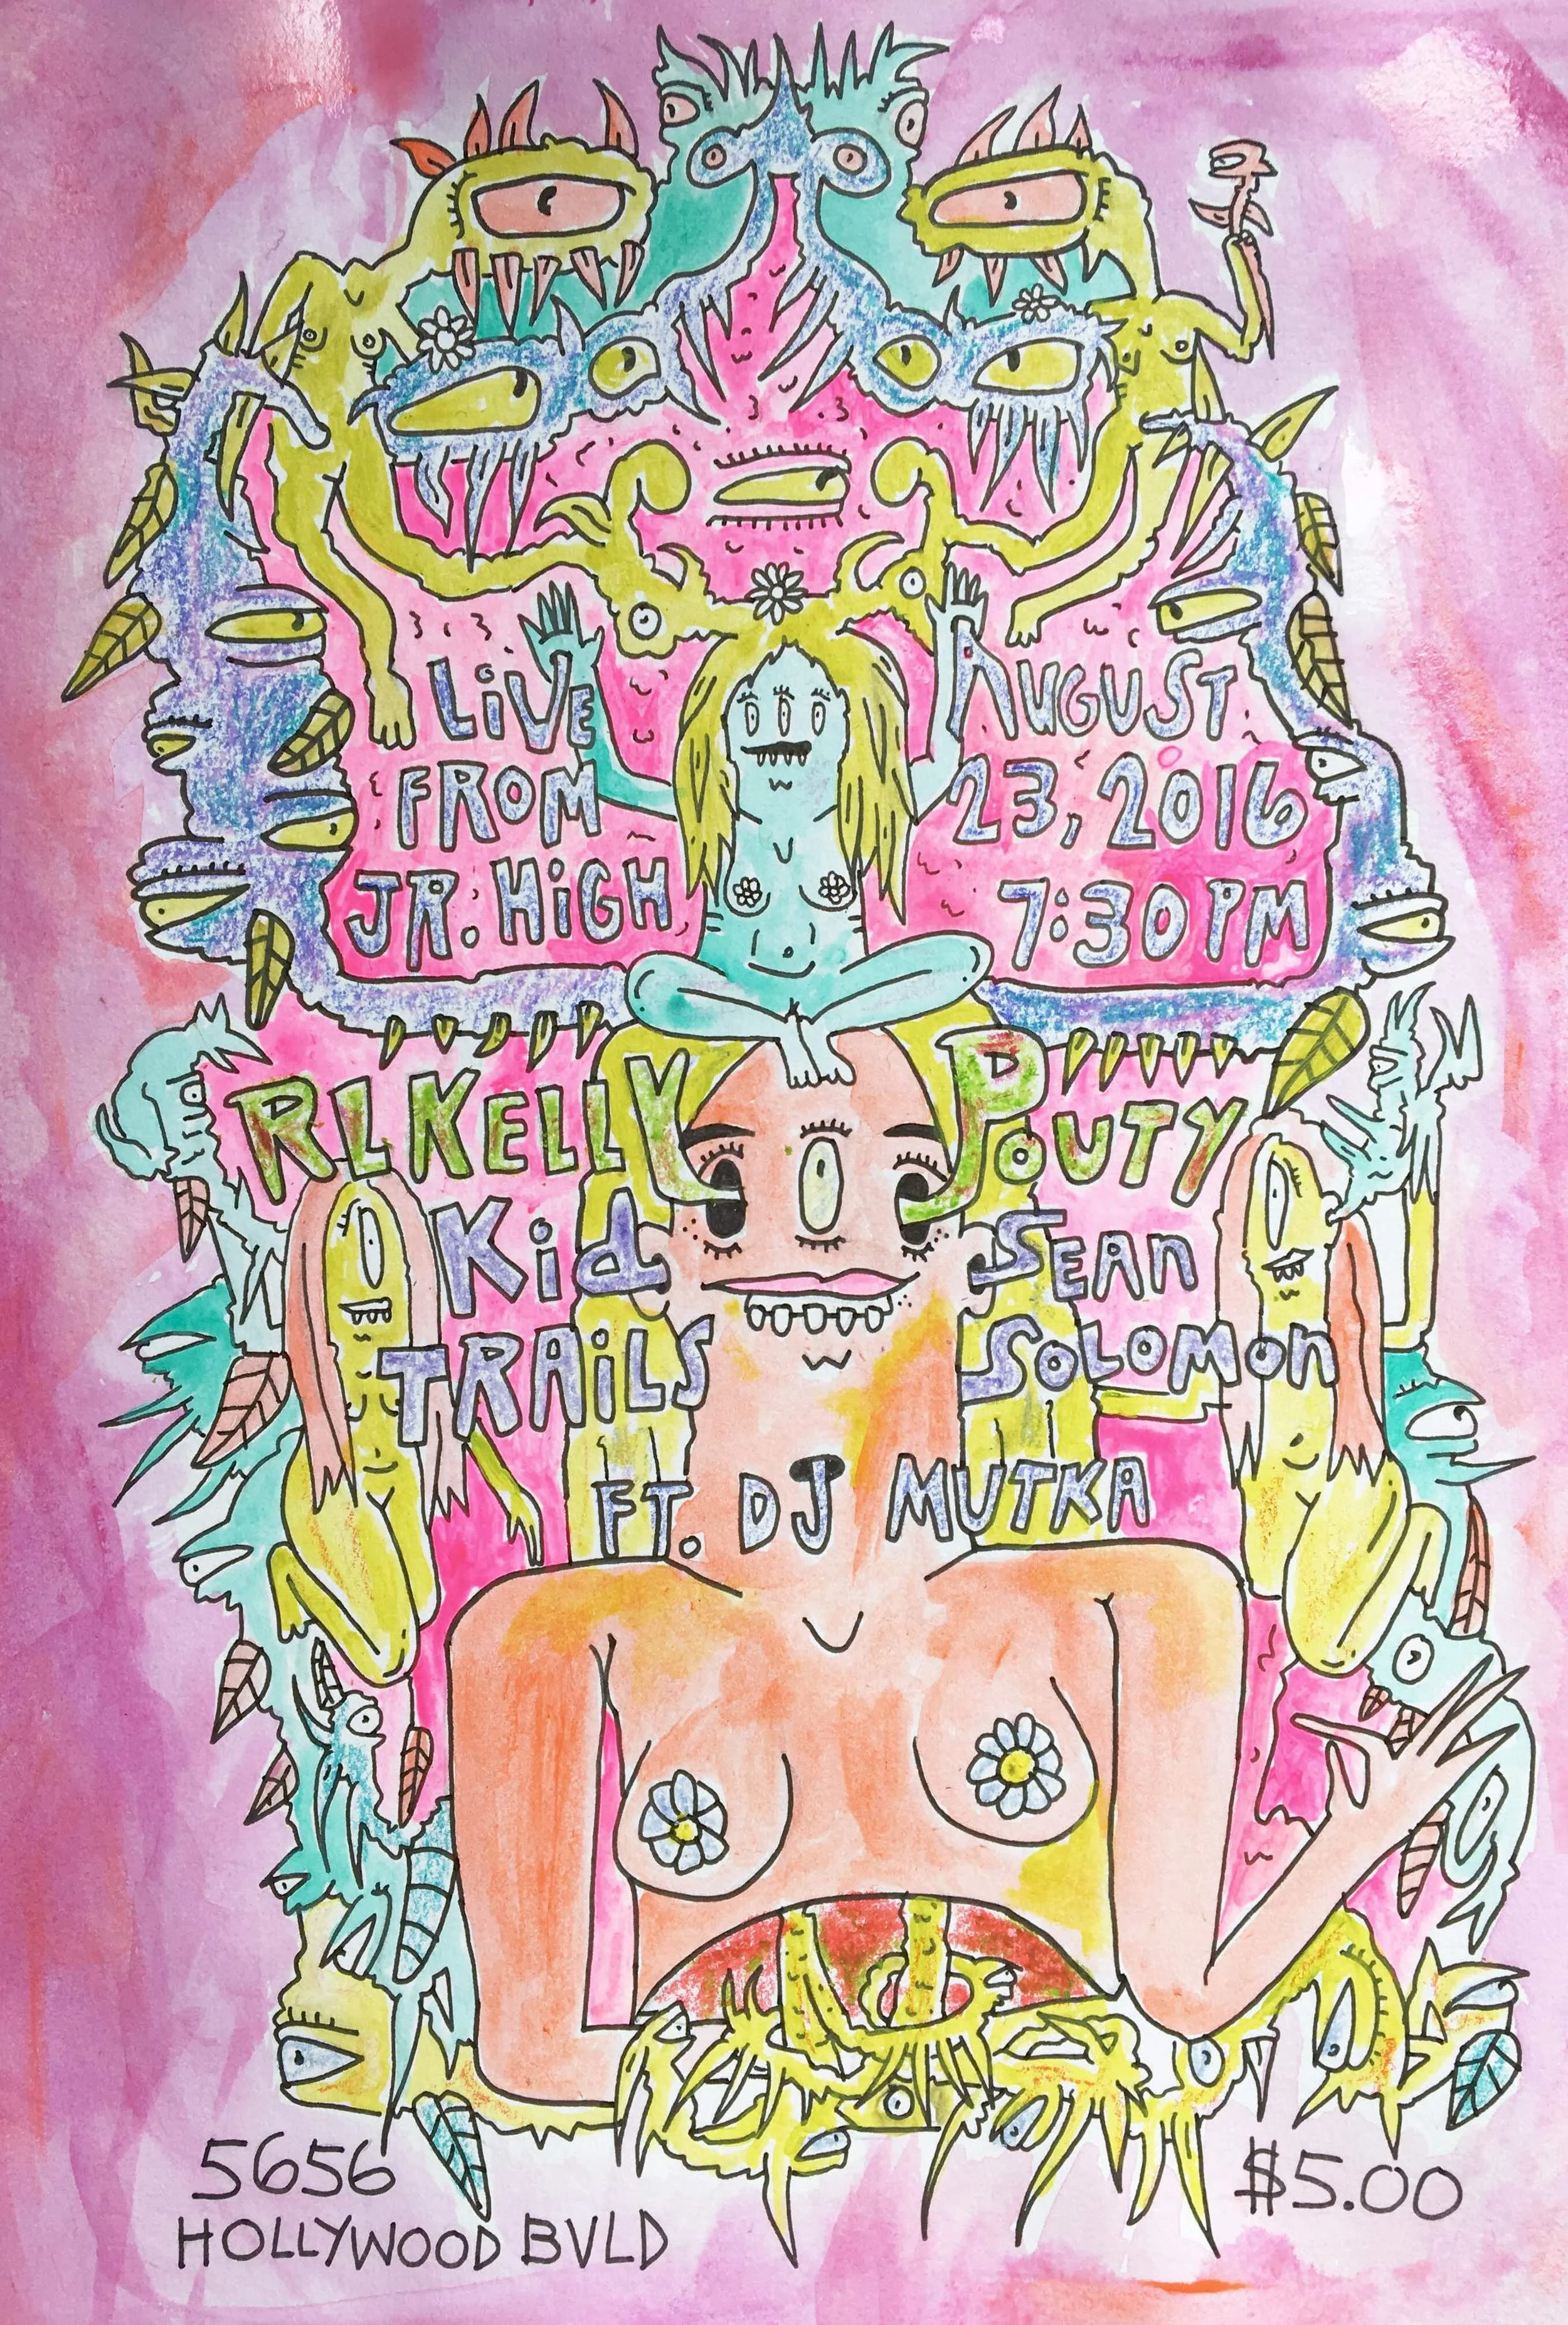 LiVE
FROM
JR. HiGH
AUGUST
23, 2016
7:30 PM
RLKELLY
POUTY
Kid
TRAiLS
SEAn
SOLOMOn
FT. DJ MUTKA
5656
HOLLYWOOD BVLD
$5.00